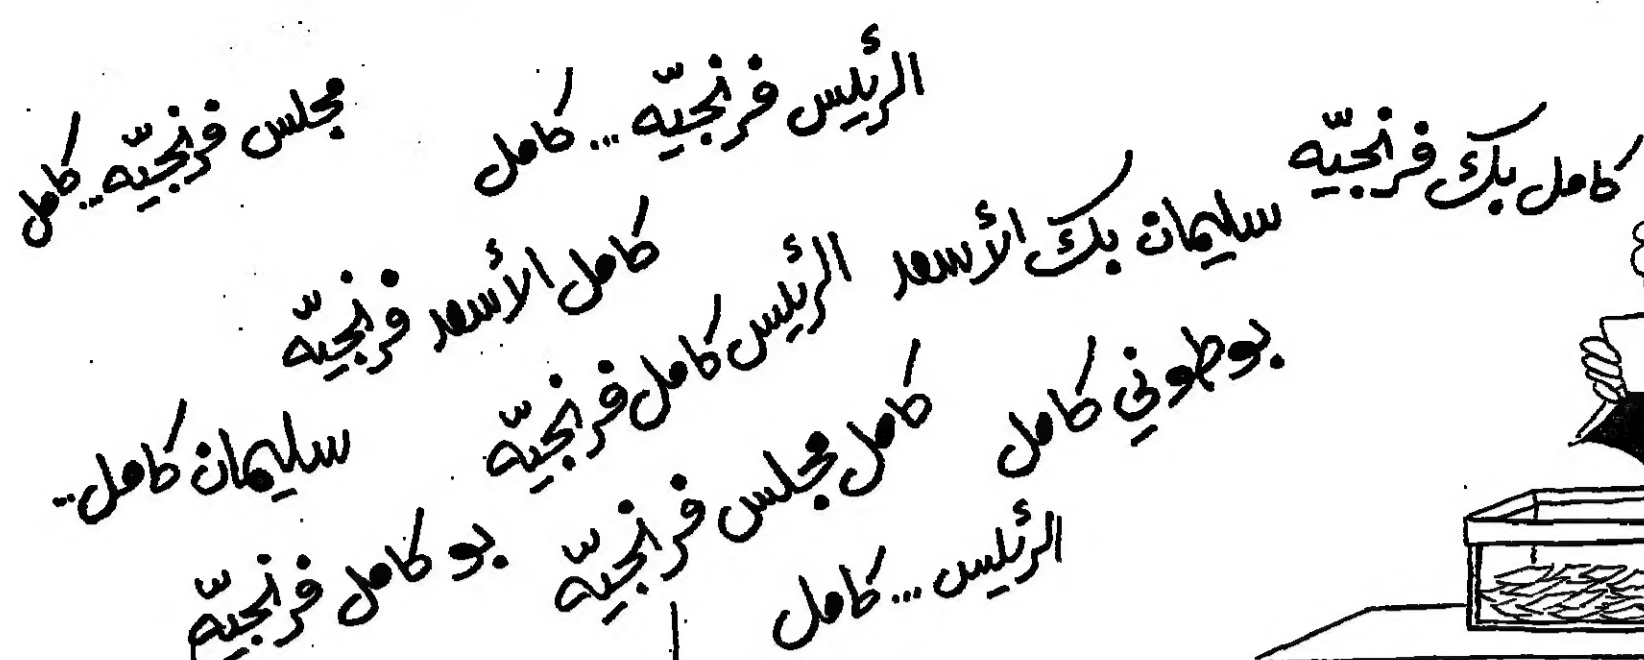 كامل بك فرنجيّه
الرئيس فرنجيّه ... كامل
مجلس فرنجيّه .. كامل
سليمان بك الأسعد
كامل الأسعد فرنجيّه
الرئيس كامل فرنجيّه
بو طوني كامل
سليمان كامل ..
كامل مجلس فرنجيّه
الرئيس ... كامل
بو كامل فرنجيّه